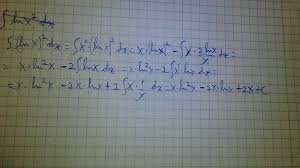 ∫ln x² dx
∫(ln x)² dx = ∫x'(ln x)² dx = x·(ln x)² - ∫x·2lnx/x dx =
= x·ln²x - 2∫lnx dx = x·ln²x - 2∫x'lnx dx =
= x·ln²x - 2x·lnx + 2∫x·1/x dx = x·ln²x - 2x·lnx + 2x + c